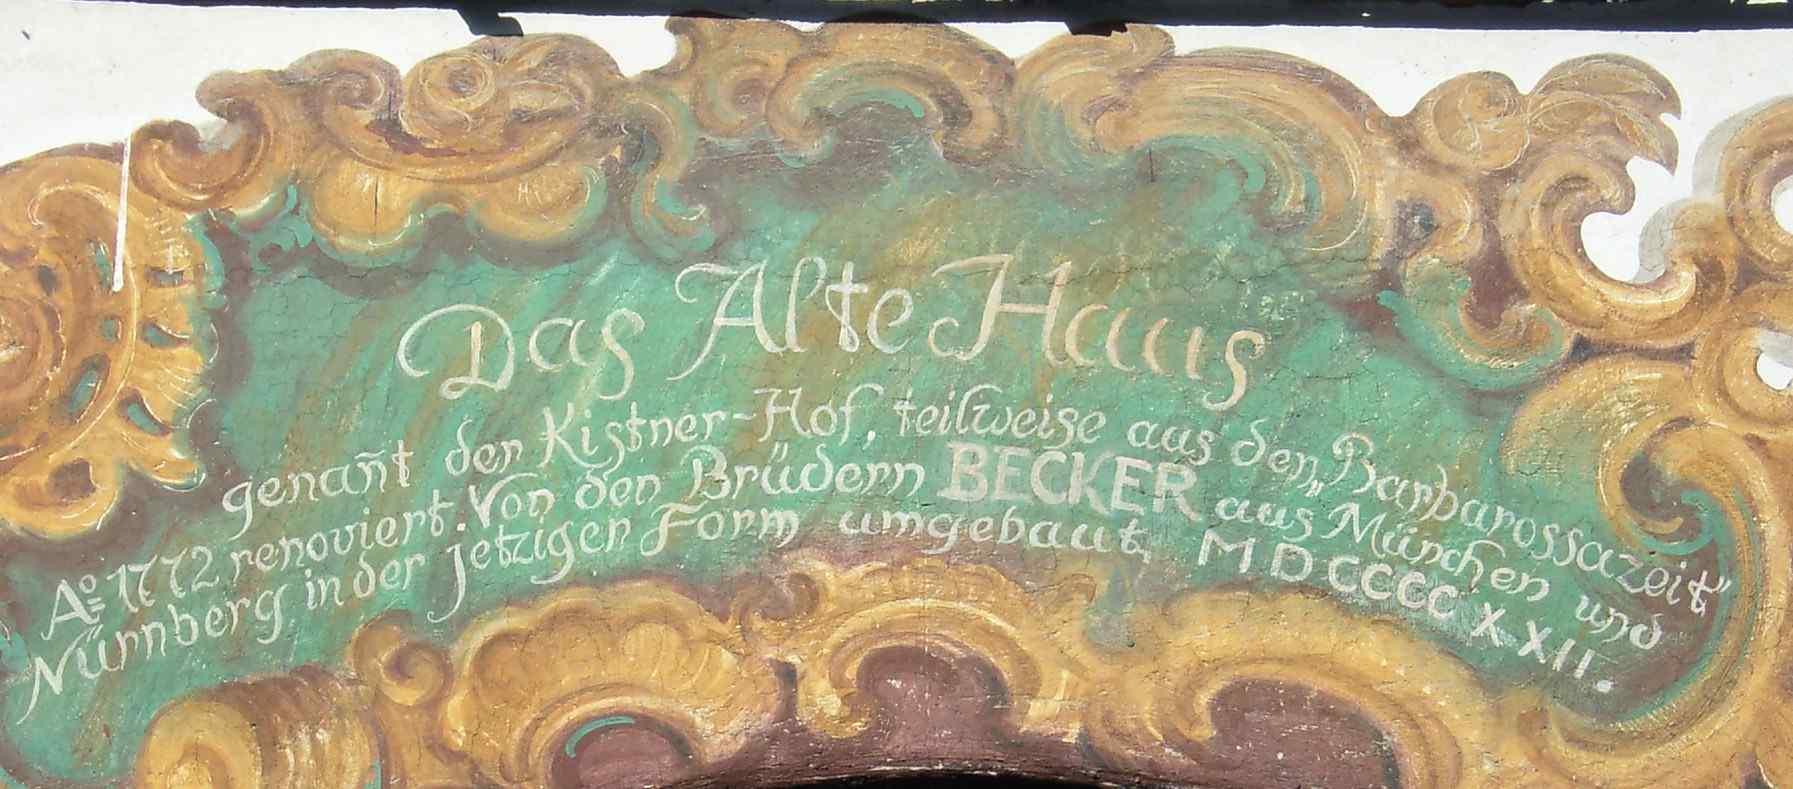 Das Alte Haus
genañt der Kistner-Hof, teilweise aus den „Barbarossazeit”
Aº 1772 renoviert. Von den Brüdern BECKER aus München und
Nürnberg in der jetzigen Form umgebaut, MDCCCCXXII.